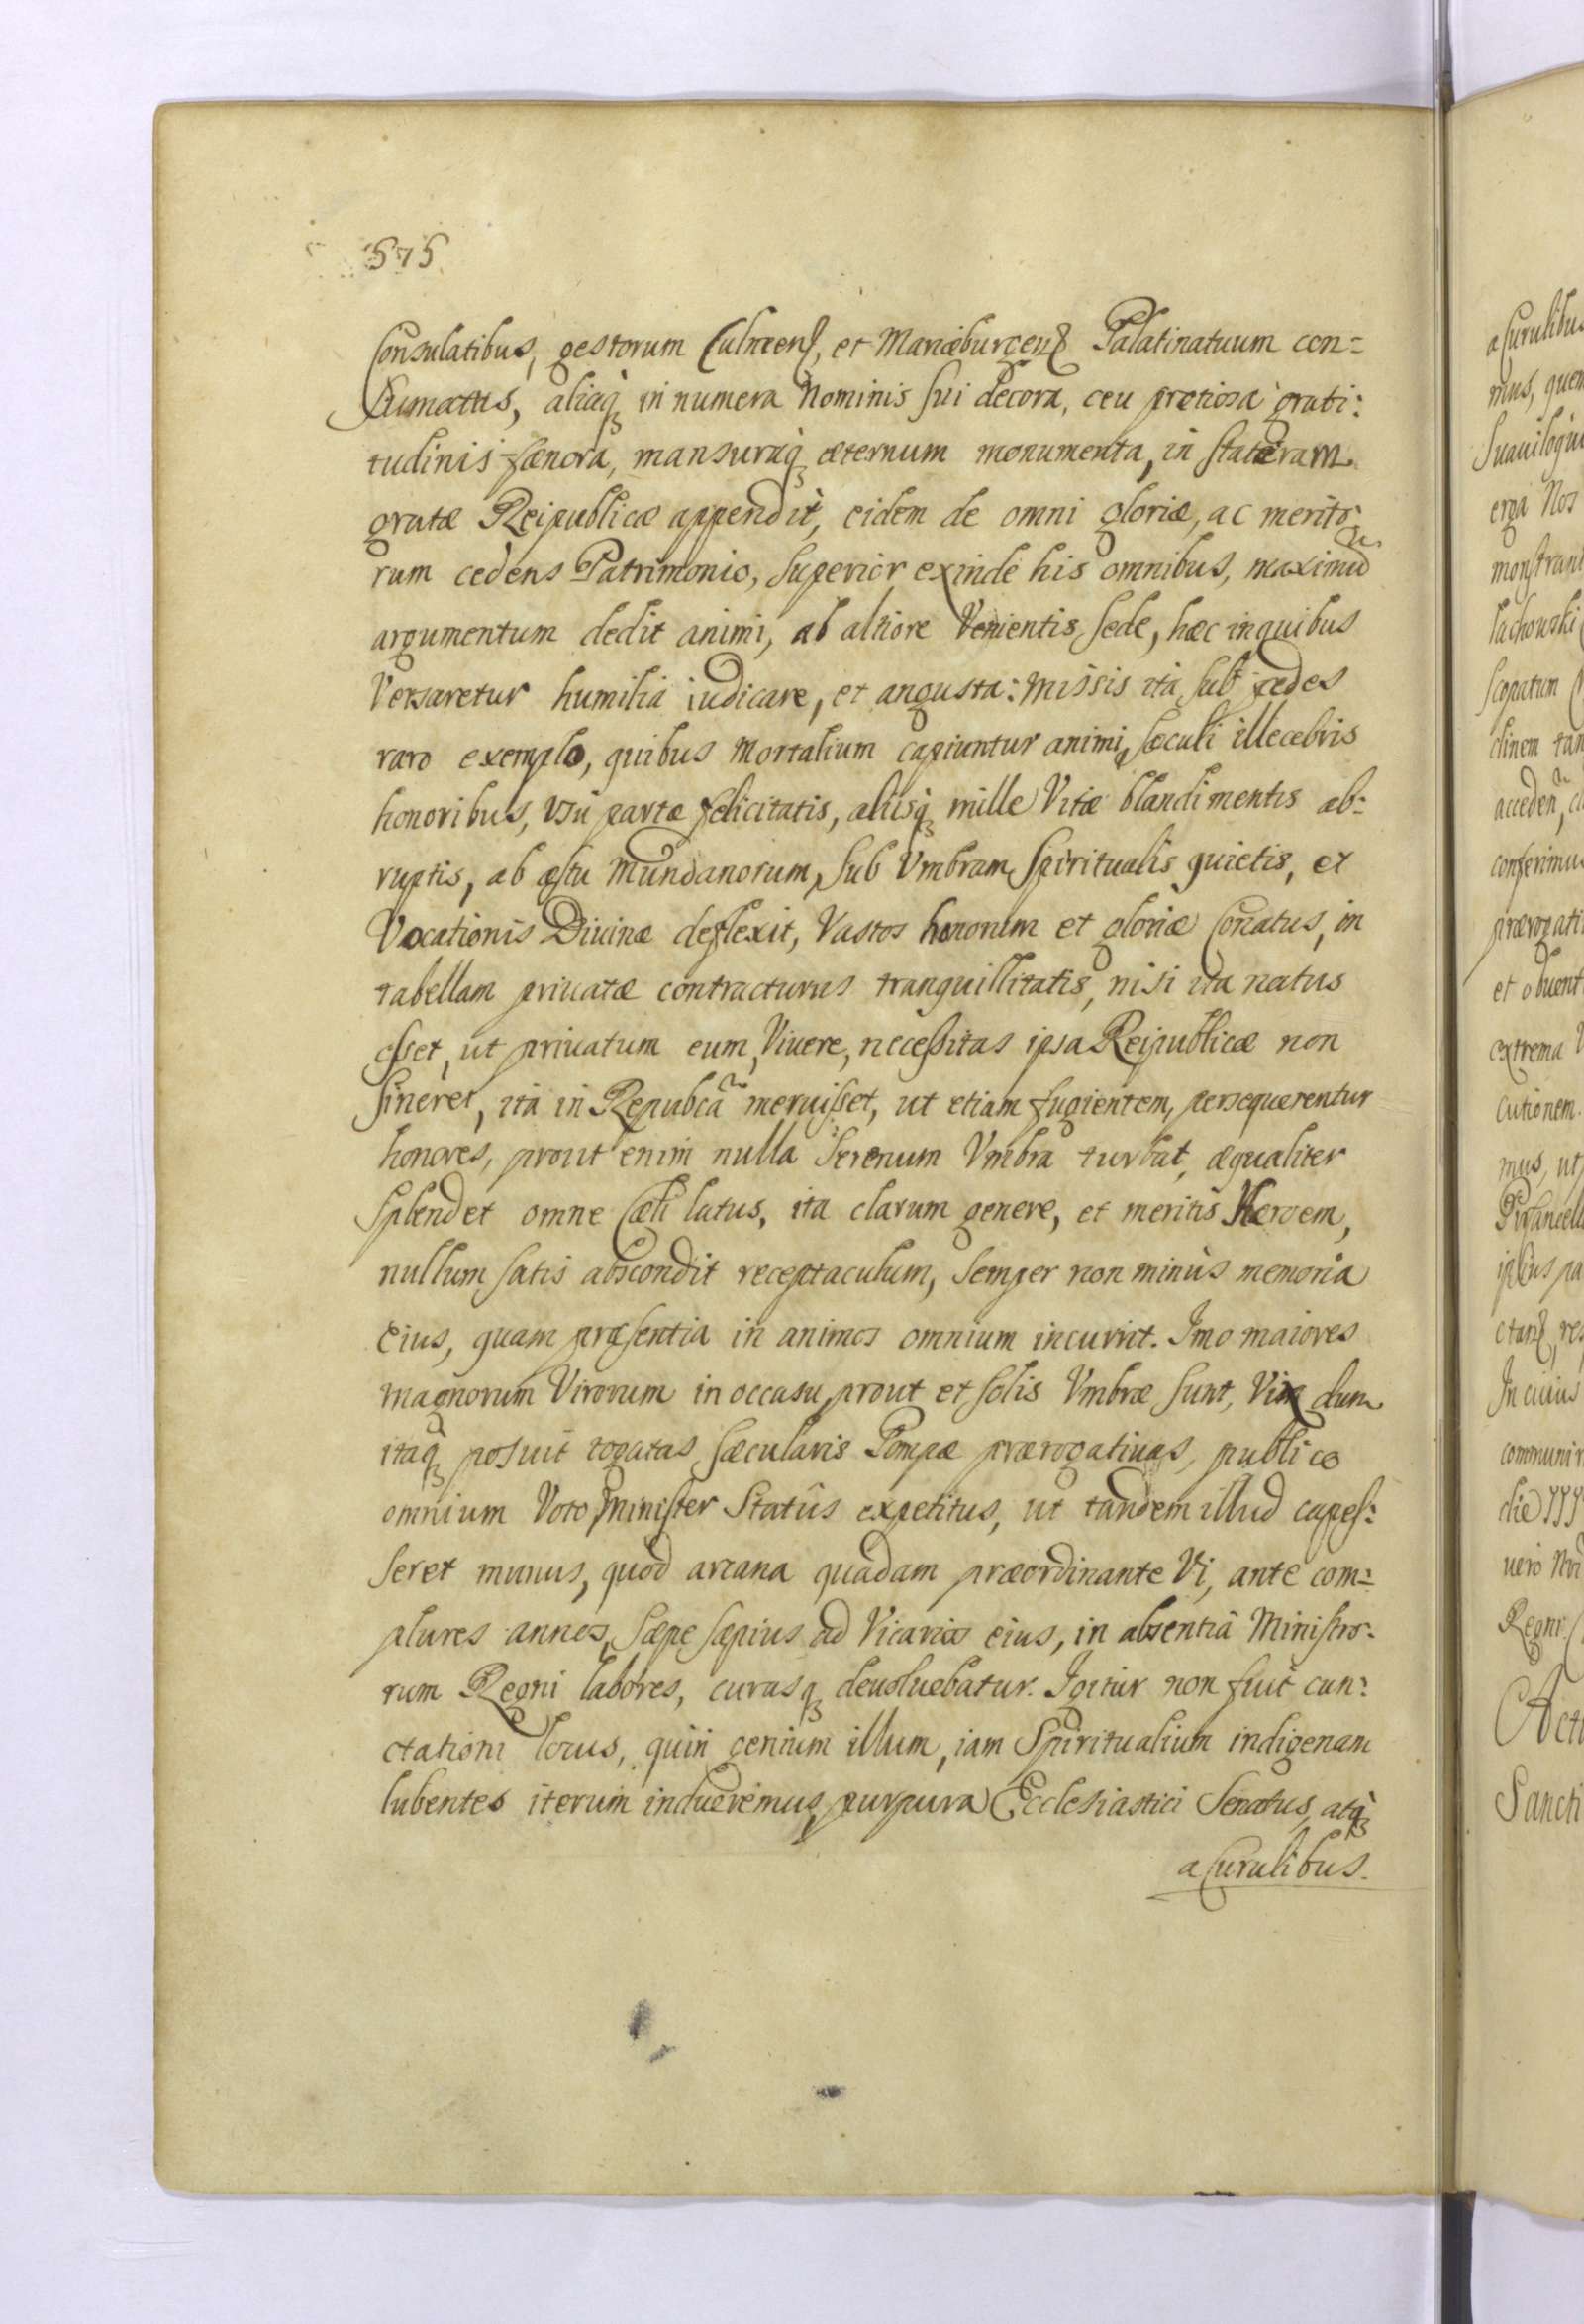 575
Consulatibus, gestorum Culmens, et Mariæburgens Palatinatuum con=
sumatus, aliaq̀ in numera Nominis sui decora, ceu pretiosa grati:
tudinis fænora, mansuraq̀ æternum monumenta, in stateram
gratæ Reipublicæ appendit, eidem de omni gloriæ, ac merito:
rum cedens Patrimonio, Superior exinde his omnibus, maximũ
argumentum dedit animi, ab altiore Venientis sede, hæc inquibus
Versaretur humilia iudicare, et angusta: missis ità sub pedes
raro exemplo, quibus Mortalium capiuntur animi, sæculi illecebris
honoribus, Vsu partæ felicitatis, alijsq̀ mille Vitæ blandimentis ab:
ruptis, ab æstu Mundanorum, sub Vmbram Spiritualis quietis, et
Vocationis Diuinæ deflexit, Vastos honorum et gloriæ Conatus, in
tabellam priuatæ contracturus tranquillitatis, nisi ita natus
esset, ut priuatum eum, Viuere, necessitas ipsa Reipublicæ non
sineret, ità in Repubcã meruisset, ut etiam fugientem, persequerentur
honores, prout enim nulla Serenum Vmbra turbat, æqualiter
splendet omne Cæli latus, ita clarum genere, et meritis Heroem,
nullum satis abscondit receptaculum, Semper non minùs memoria
Eius, quam præsentia in animos omnium incurrit. Imo maiores
magnorum Virorum in occasu, prout et solis Vmbræ sunt, Vix dum
itaq̀ posuit togatas, sæcularis Pompæ prærogatiuas, publico
omnium Voto Minister Statûs expetitus, ut tandem illud capes:
seret munus, quod arcana quadam præordinante Vi, ante com=
plures annos, sæpe sæpius ad Vicarios eius, in absentiâ Ministro:
rum Regni labores, curasq̀ deuoluebatur. Igitur non fuit cun:
ctationi locus, quin genium illum, iam Spiritualium indigenam
lubentes iterum indueremus, purpura Ecclesiastici Senatus, atq̀
a Curulibus.